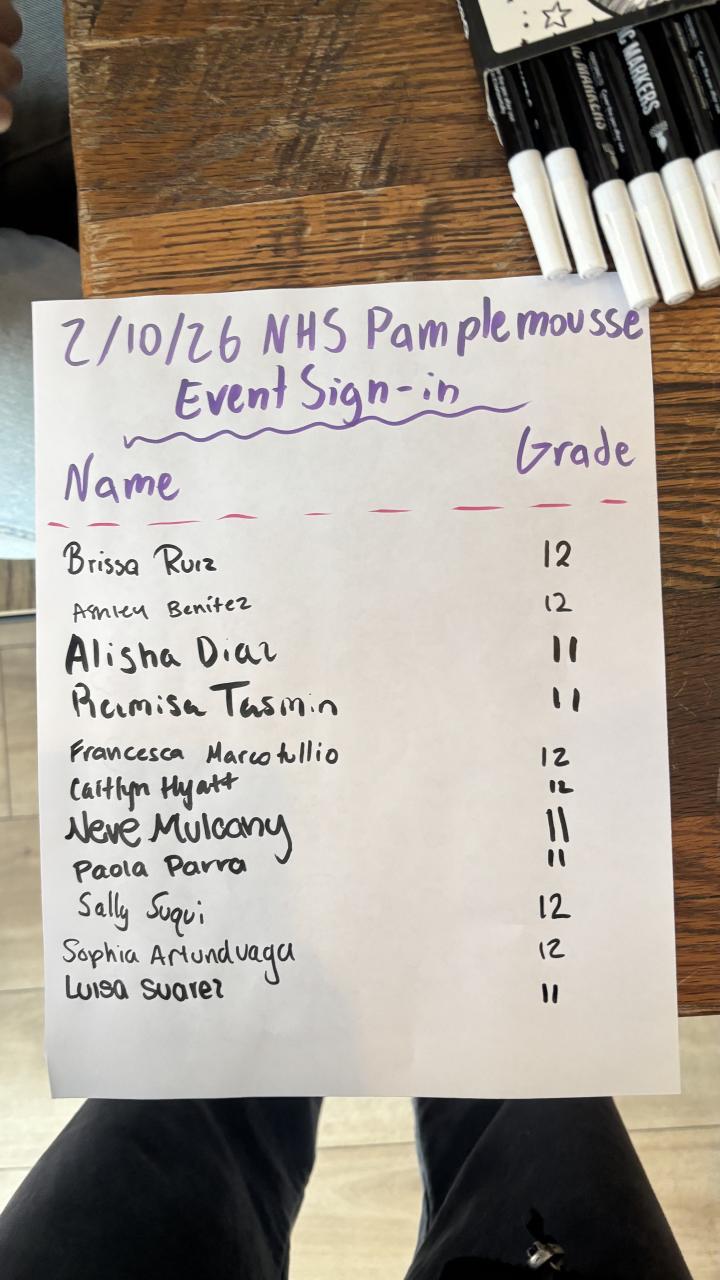 MARKERS
2/10/26 NHS Pamplemousse
Event Sign-in
Name Grade
Brissa Ruiz 12
Ashley Benitez 12
Alisha Diaz 11
Ramisa Tasmin 11
Francesca Marcotullio 12
Caitlyn Hyatt 12
Neve Mulcany 11
Paola Parra 11
Sally Suqui 12
Sophia Artunduaga 12
Luisa Suarez 11